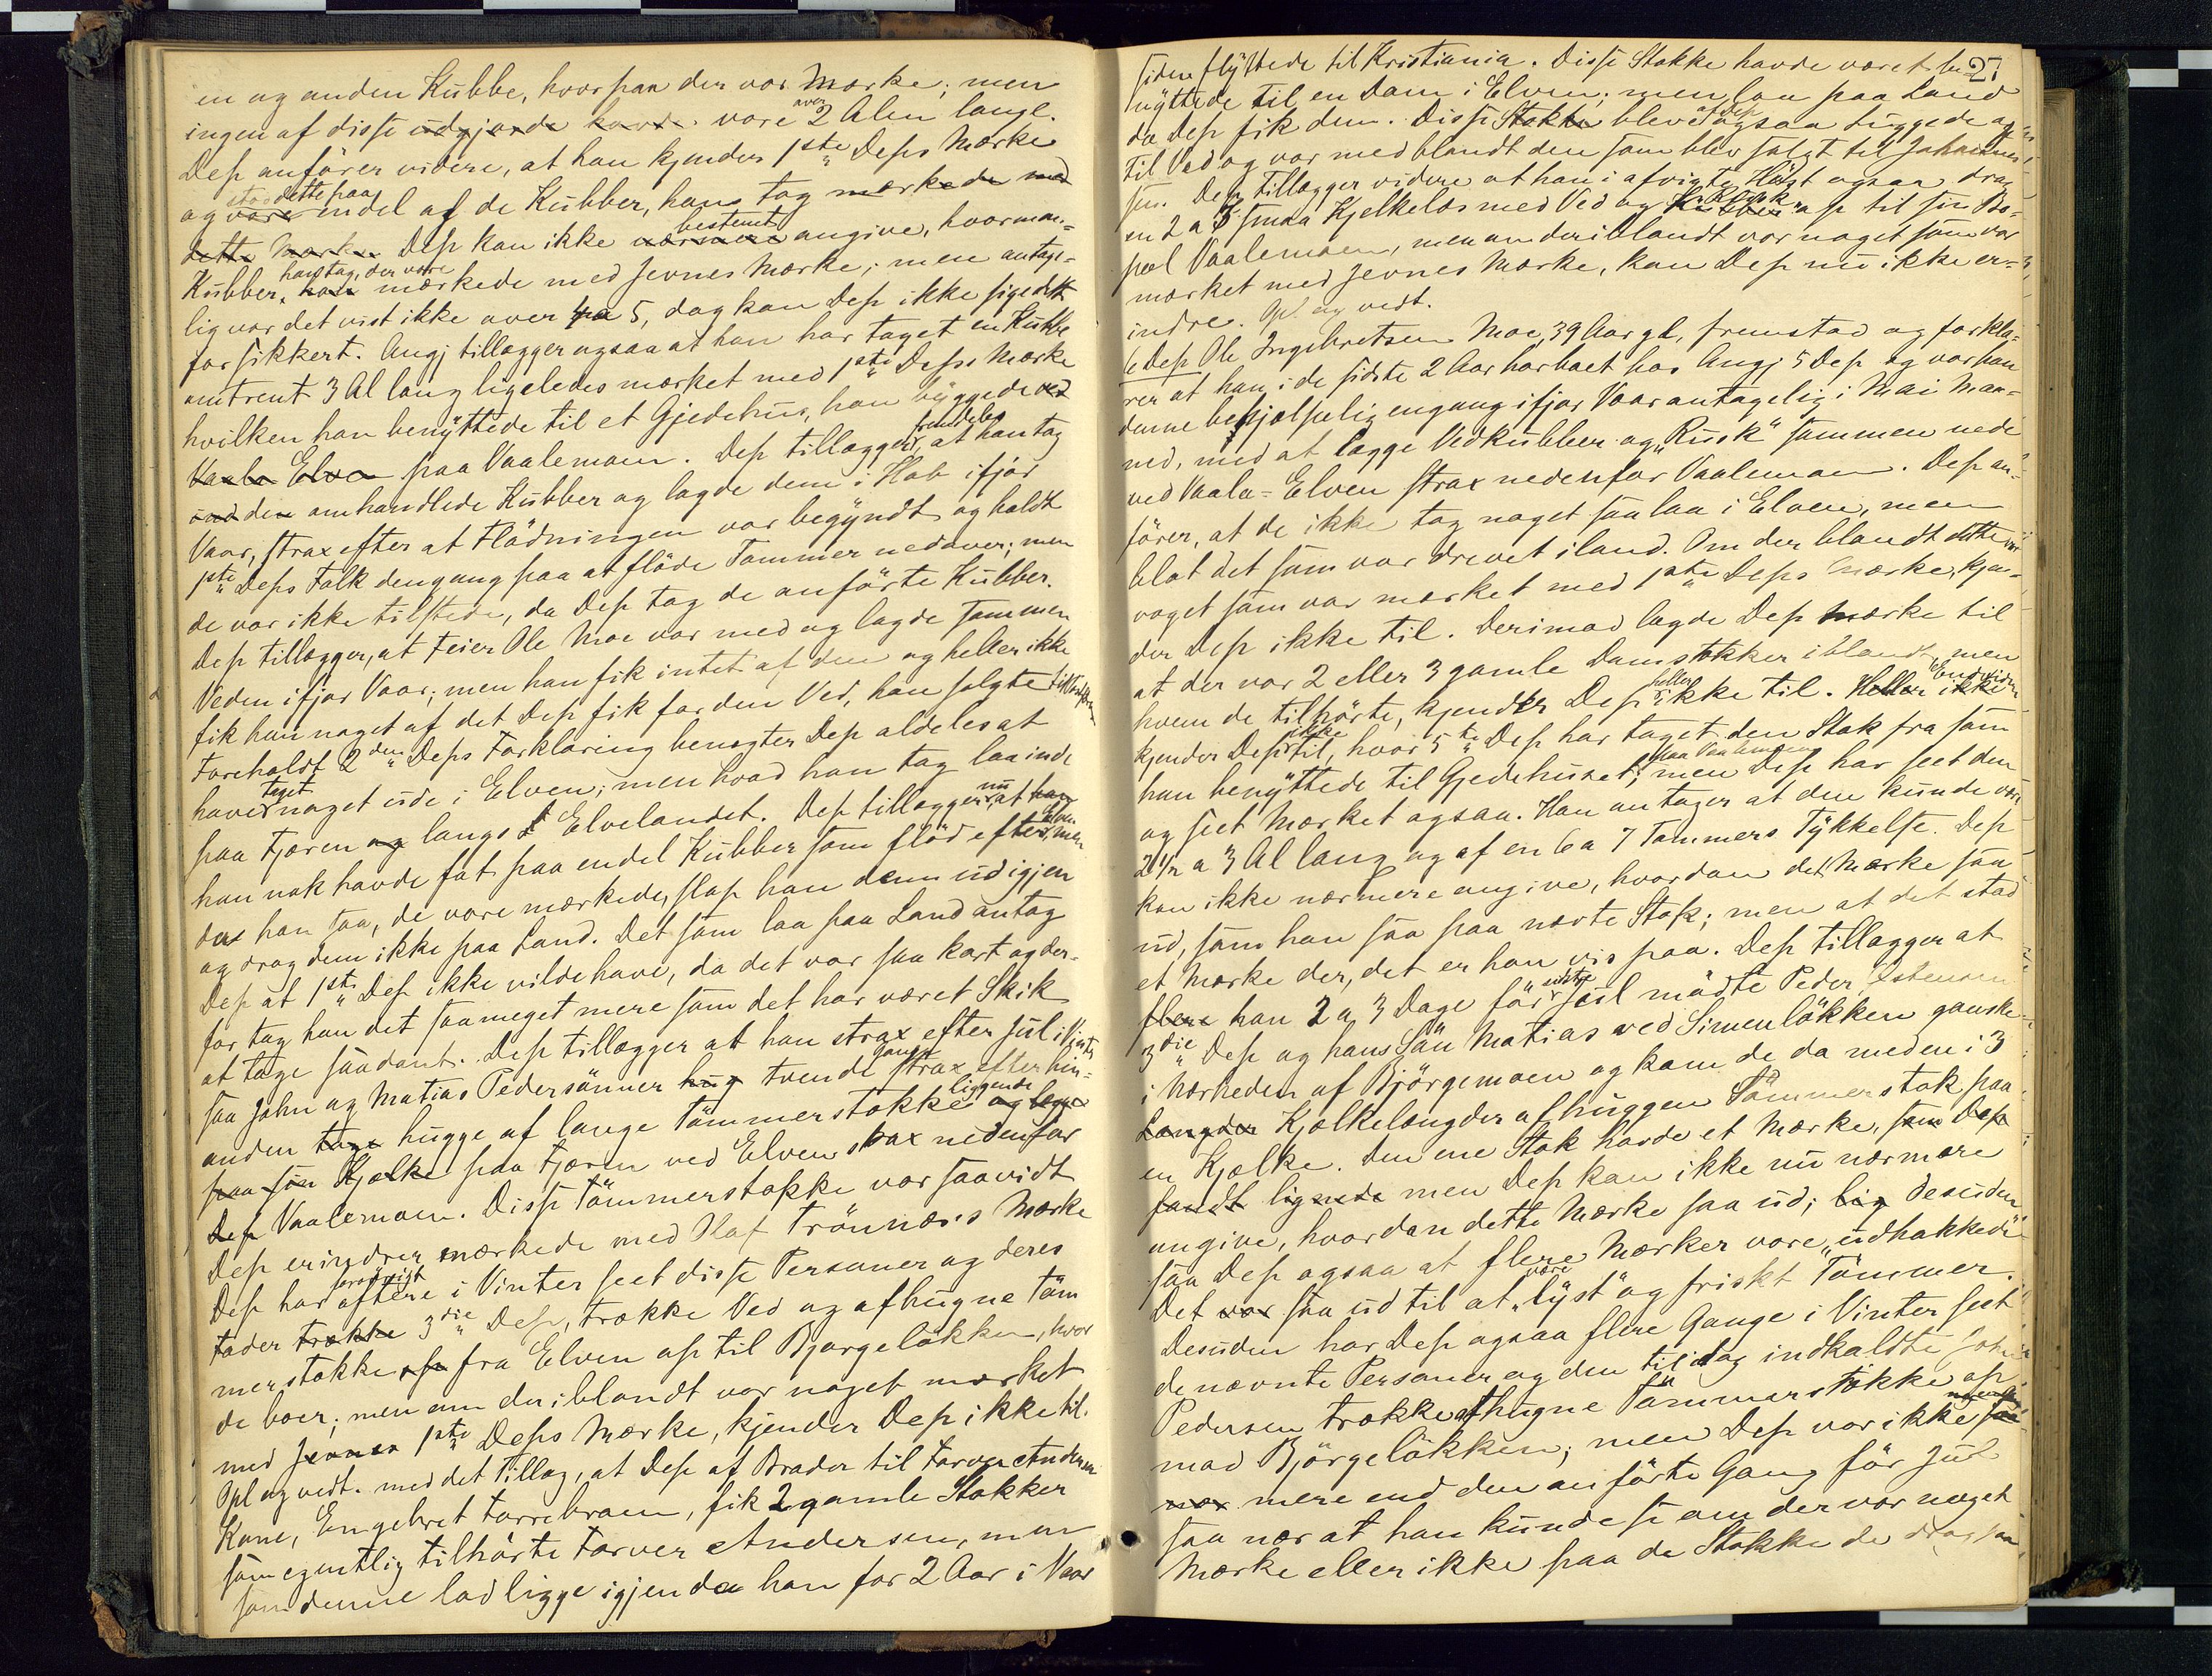 en og anden Kubbe, hvorpaa der var Mærke; men
ingen af disse udgjorde havde vare over 2 Alen lange.
Dep anfører videre, at han kjender 1ste Deps Mærke
og vare stod dette paa endel af de Kubber, hans tog mærkede med
dette Mærke. Dep kan ikke nærmere bestemt angive, hvormange
Kubber, han han tog, der vare mærkede med Jevnes Mærke; men antage-
lig var det vist ikke over 4 a 5, dog kan Dep ikke sige dette
for sikkert. Angj tillægger ogsaa at han har taget en Kubbe
omtrent 3 Al lang ligeledes mærket med 1ste Deps Mærke
hvilken han benyttede til et Gjedehus, han byggede ved
Vaala Elven paa Vaalemoen. Dep tillægger fremdeles, at han tog
ind den omhandlede Kubber og lagde dem i Hob ifjor
Vaar, strax efter at Flødningen var begyndt og holdt
1ste Deps Folk dengang paa at fløde Tømmer nedover; men
de var ikke tilstede, da Dep tog de anførte Kubber.
Dep tillægger, at Feier Ole Moe var med og lagde sammen
Veden ifjor Vaar; men han fik intet af den og heller ikke
fik han noget af det Dep fik for den Ved, han solgte
Foreholdt 2den Deps Forklaring benegter Dep aldeles at
have taget noget ude i Elven; men hvad han tog laa inde
paa Fjæren og langs Elvelandet. Dep tillægger nu, at han
han nok havde fat paa endel Kubber som flød efter Elven, men
das han saa, de vare mærkede, slap han dem ud igjen
og drog dem ikke paa Land. Det som laa paa Land antog
Dep at 1ste Dep ikke vilde have, da det var saa kort og der-
for tog han det saameget mere som det har været Skik
at tage saadant. Dep tillægger at han strax efter Jul i Vinter
saa John og Matias Pedersønner hug tvende Gange strax efter hin-
anden tage hugge af lange Tømmerstokke liggende og lagde
paa sin Kjælke paa Fjæren ved Elven strax nedenfor
Dep Vaalemoen. Disse Tømmerstokke var saavidt
Dep erindrer mærkede med Olaf Trønnæs's Mærke
Dep har forøvrigt oftere i Vinter seet disse Personer og deres
Fader trække 3die Dep, trække Ved og afhugne Tøm
merstokke op fra Elven op til Bjørgeløkken, hvor
de boer; men om der iblandt var noget mærket
med Jevnes 1ste Deps Mærke, kjender Dep ikke til.
Opl og vedt. med det Tillæg, at Dep af Broder til Farver Andersens
Kone, Engebret Torrebraen, fik 2 gamle Stokker
som egentlig tilhørte Farver Andersen, men
som denne lod ligge igjen da han for 2 Aar i Vaar
27
siden flyttede til Kristiania. Disse Stokke havde været be-
nyttede til en Dam i Elven; men laa paa Land
da Dep fik dem. Disse Stokke blev af Dep ogsaa huggede op
til Ved og var med blandt den som blev solgt til Johannes-
sen. Dep tillægger videre at han i afvigte Høst ogsaa drog
en 2 a 3 smaa Kjelkelæs med Ved og Kubber Rusk op til sin Bo-
pæl Vaalemoen, men om deriblandt var noget som var
mærket med Jevnes Mærke, kan Dep nu ikke er-
indre. Opl og vedt.
6 Dep Ole Ingebretsen Moe, 39 Aar gl, fremstod og forkla-
rer at han i de sidste 2 Aar har boet hos Angj 5 Dep og var han
denne behjælpelig engang ifjor Vaar antagelig i Mai Maa-
ned, med at lægge Vedkubber og "Rusk" sammen nede
ved Vaala-Elven strax nedenfor Vaalemoen. Dep an-
fører, at de ikke tog noget som laa i Elven, men
blot det som var drevet iland. Om der blandt dette var
noget som var mærket med 1ste Deps Mærke, kjen-
der Dep ikke til. Derimod lagde Dep Mærke til
at der var 2 eller 3 gamle Damstokker iblandt, men
hvem de tilhørte, kjender Dep heller ikke til. Heller ikke Endvidere
kjender Dep ikke til, hvor 5te Dep har taget den Stok fra som
han benyttede til Gjedehuset paa Vaalemoen; men Dep har seet den
og seet Mærket ogsaa. Han antager at den kunde være
2 1/2 a 3 Al lang og af en 6 a 7 Tommers Tykkelse. Dep
kan ikke nærmere angive, hvordan det Mærke saa
ud, som han saa paa nævnte Stok; men at det stod
et Mærke der, det er han vis paa. Dep tillægger at
flere han 2 a 3 Dage før sidste Jul mødte Peder Estensen
3die Dep og hans Søn Matias ved Simenløkken ganske
i Nærheden af Bjørgemoen og kom de da med en i 3
Længder Kjælkelængder afhuggen Tømmerstok paa
en Kjælke. Den ene Stok havde et Mærke, som Dep
fandt lignede men Dep kan ikke nu nærmere
angive, hvordan dette Mærke saa ud; lig desuden
saa Dep ogsaa at flere Mærker vare "udhakkede"
Det var saa ud til at være "lyst" og friskt Tømmer.
Desuden har Dep ogsaa flere Gange i Vinter seet
de nævnte Personer og den til idag indkaldte John
Pedersen trække afhugne Tømmerstokke op
mod Bjørgeløkken; men Dep var ikke saa
nær mere end den anførte Gang før Jul
saa nær at han kunde se om der var noget
Mærke eller ikke paa de Stokke de drog paa